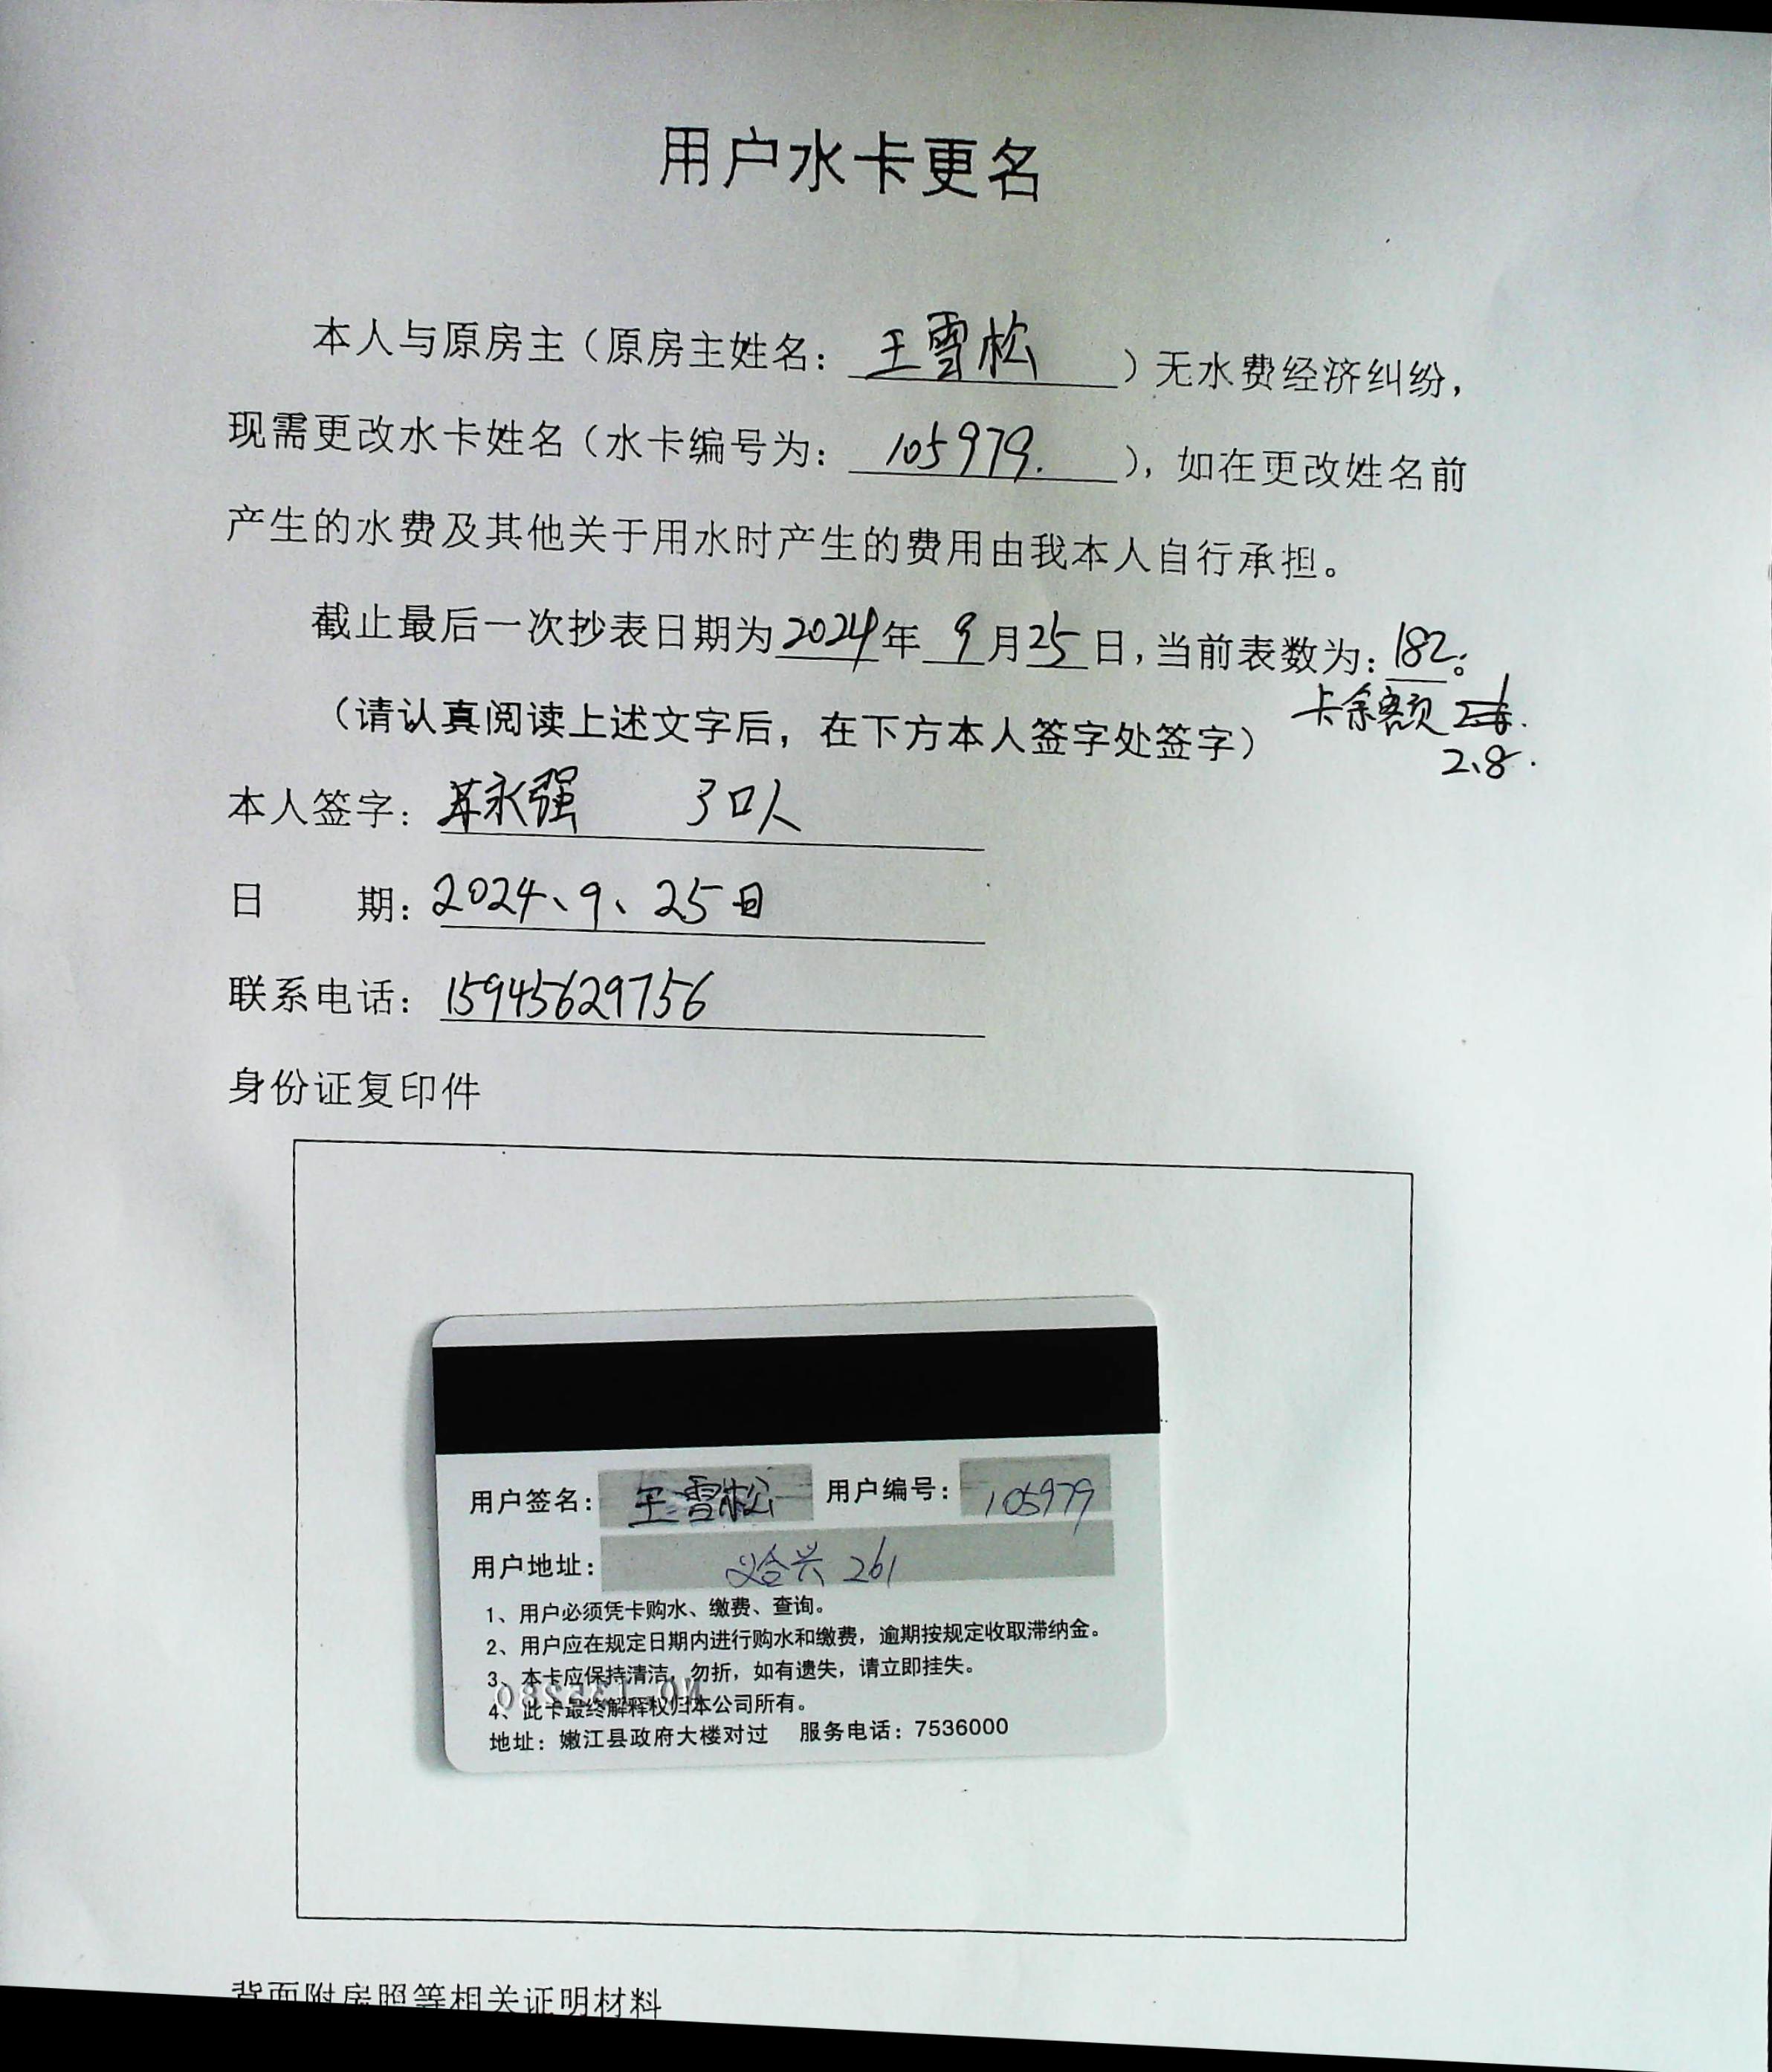 用户水卡更名
本人与原房主（原房主姓名：王雪松）无水费经济纠纷，
现需更改水卡姓名（水卡编号为：105979.），如在更改姓名前
产生的水费及其他关于用水时产生的费用由我本人自行承担。
截止最后一次抄表日期为2024年9月25日，当前表数为：182。
卡余额
2.8.
（请认真阅读上述文字后，在下方本人签字处签字）
本人签字：永强 3口人
日 期：2024、9、25日
联系电话：15945629756
身份证复印件
用户签名：王雪松 用户编号：105979
用户地址：义合兴 261
1、用户必须凭卡购水、缴费、查询。
2、用户应在规定日期内进行购水和缴费，逾期按规定收取滞纳金。
3、本卡应保持清洁，勿折，如有遗失，请立即挂失。
4、此卡最终解释权归本公司所有。
地址：嫩江县政府大楼对过 服务电话：7536000
背面附房照等相关证明材料